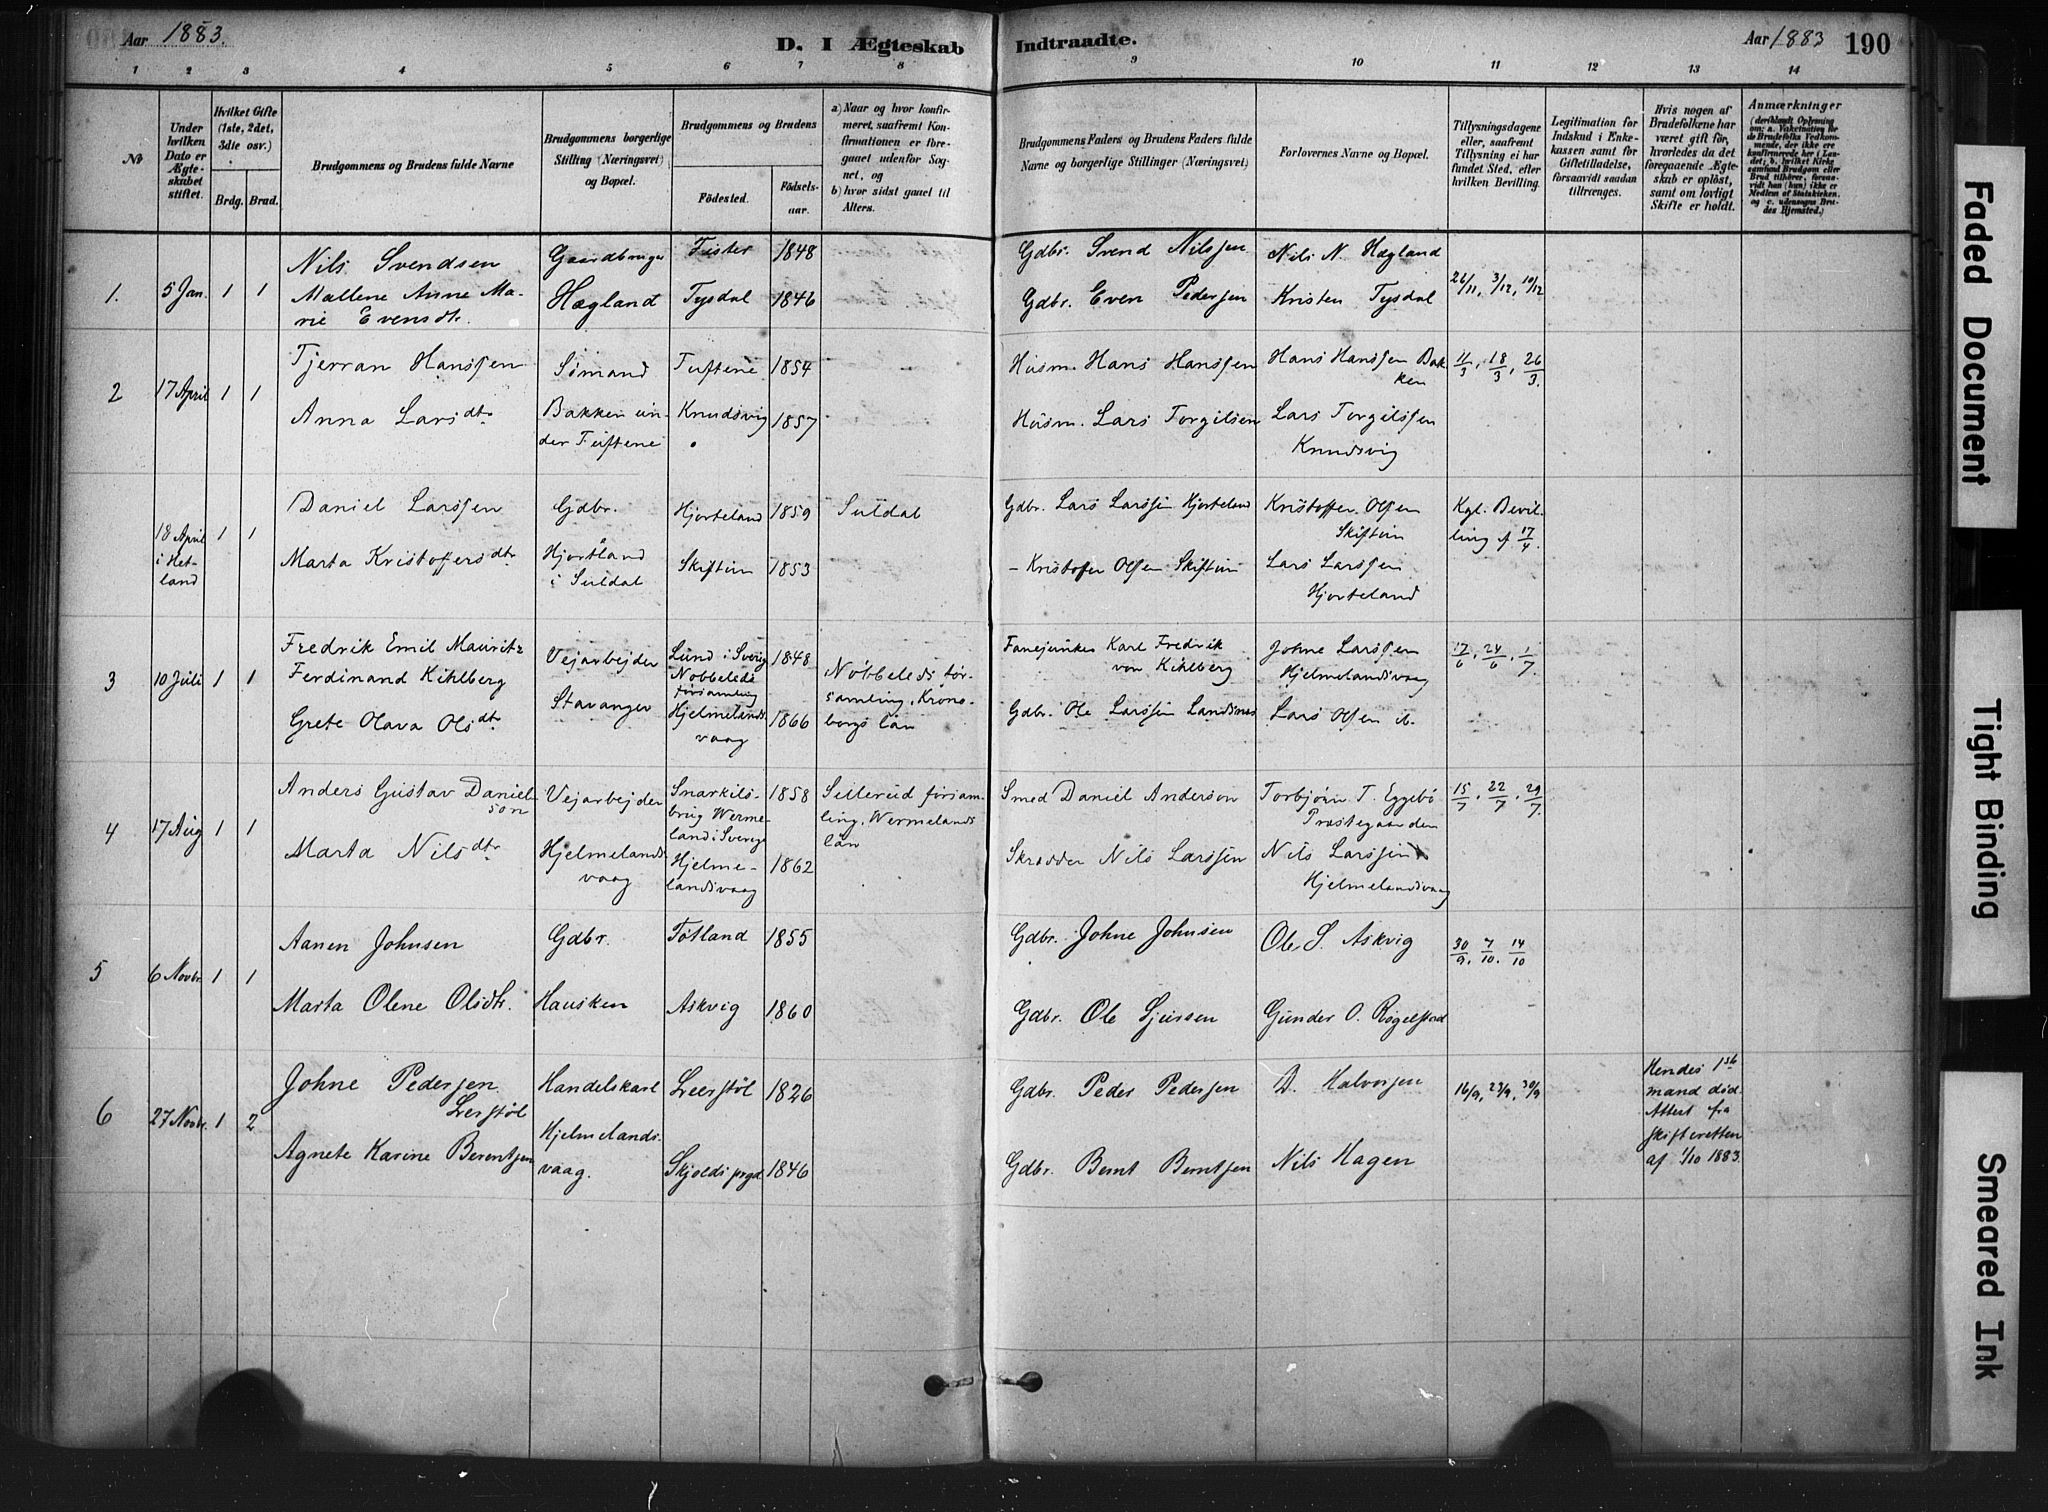 Aar 1883.
D. I Ægteskab Indtraadte.
Aar 1883
190
1 2 3 4 5 6 7 8 9 10 11 12 13 14
№
Under hvilken Dato er Ægteskabet stiftet.
Hvilket Gifte (1ste, 2det, 3die osv.)
Brdg. Brud.
Brudgommens og Brudens fulde Navne
Brudgommens borgerlige Stilling (Næringsvei) og Bopæl.
Brudgommens og Brudens
Födested.
Födselsaar.
a) Naar og hvor konfirmeret, saafremt Konfirmationen er foregaaet udenfor Sognet, og
b) hvor sidst gaaet til Alters.
Brudgommens Faders og Brudens Faders fulde Navne og borgerlige Stillinger (Næringsvei)
Forlovernes Navne og Bopæl.
Tillysningsdagene eller, saafremt Tillysning ei har fundet Sted, efter hvilken Bevilling.
Legitimation for Indskud i Enkekassen samt for Giftetilladelse, forsaavidt saadan tiltrænges.
Hvis nogen af Brudefolkene har været gift för, hvorledes da det foregaaende Ægteskab er oplöst, samt om lovligt Skifte er holdt.
Anmærkninger
(deriblandt Oplysning om: a. Vakcination for de Brudefolks Vedkommende, der ikke ere konfirmerede her i Landet; b. hvilket Kirkesamfund Brudgom eller Brud tilhører, forsaavidt han (hun) ikke er Medlem af Statskirken, og c. udensogns Brudes Hjemsted.)
1. 5 Jan. 1 1
Nils Svendsen
Mallene Anne Marie Evensdtr.
Gaardbruger
Hægland
Fister 1848
Tysdal 1846
Gdbr. Svend Nilssen
Gdbr. Even Pedersen
Nils N. Hægland
Kristen Tysdal
26/11, 3/12, 10/12
2 17 April 1 1
Tjerran Hanssen
Anna Larsdtr
Sømand
Bakken under Tuftene
Tuftene 1854
Knudsvig 1857
Husm. Hans Hanssen
Husm. Lars Torgilsen
Hans Hanssen Bakken
Lars Torgilssen
Knudsvig
11/3, 18/3, 26/3.
18 April i Hetland 1 1
Daniel Larssen
Marta Kristoffersdtr
Gdbr.
Hjortland
i Suldal
Hjorteland 1859
Skiftun 1853
Suldal
Gdbr. Lars Larssen Hjorteland
- Kristofer Olsen Skiftun
Kristoffer Olsen
Skiftun
Lars Larssen
Hjorteland
Kgl. Bevilling af 17/4.
3 10 Juli 1 1
Fredrik Emil Mauritz
Ferdinand Kihlberg
Grete Olava Olsdtr
Vejarbejder
Stavanger
Lund i Sverig
Nöbbeleds
församling 1848
Hjelmelandsvaag 1866
Nöbbeleds församling, Kronoborgs län
Fanejunker Karl Fredrik
von Kihlberg
Gdbr. Ole Larssen Landsnes
Johne Larssen
Hjelmelandsvaag
Lars Olsen ib.
17/6, 24/6, 1/7.
4 17 Aug 1 1
Anders Gustav Danielson
Marta Nilsdtr
Vejarbejder
Hjelmelandsvaag
Snarkilsbrug Wermeland i Sverige 1858
Hjelmelandsvaag 1862
Sillerud församling, Wermelands län
Smed Daniel Anderson
Skrædder Nils Larssen
Torbjörn T. Eggebö
Præstegaarden
Nils Larssen
Hjelmelandsvaag
15/7, 22/7, 29/7.
5 6 Novbr. 1 1
Aanen Johnsen
Marta Olene Olsdtr.
Gdbr.
Hausken
Tötland 1855
Askvig 1860
Gdbr. Johne Johnsen
Gdbr. Ole Sjursen
Ole S. Askvig
Gunder O. Rögelstad
30/9, 7/10, 14/10
6 27 Novbr. 1 2
Johne Pedersen
Leerstöl
Agnete Karine Berentsen
Handelskarl
Hjelmelandsvaag.
Leerstöl 1826
Skjolds prgd 1846
Gdbr. Peder Pedersen
Gdbr. Bernt Berntsen
D. Halvorsen
Nils Hagen
16/9, 23/9, 30/9
Hendes 1ste
mand död.
Attest fra
Skifteretten
af 1/10 1883.
Faded Document
Tight Binding
Smeared Ink